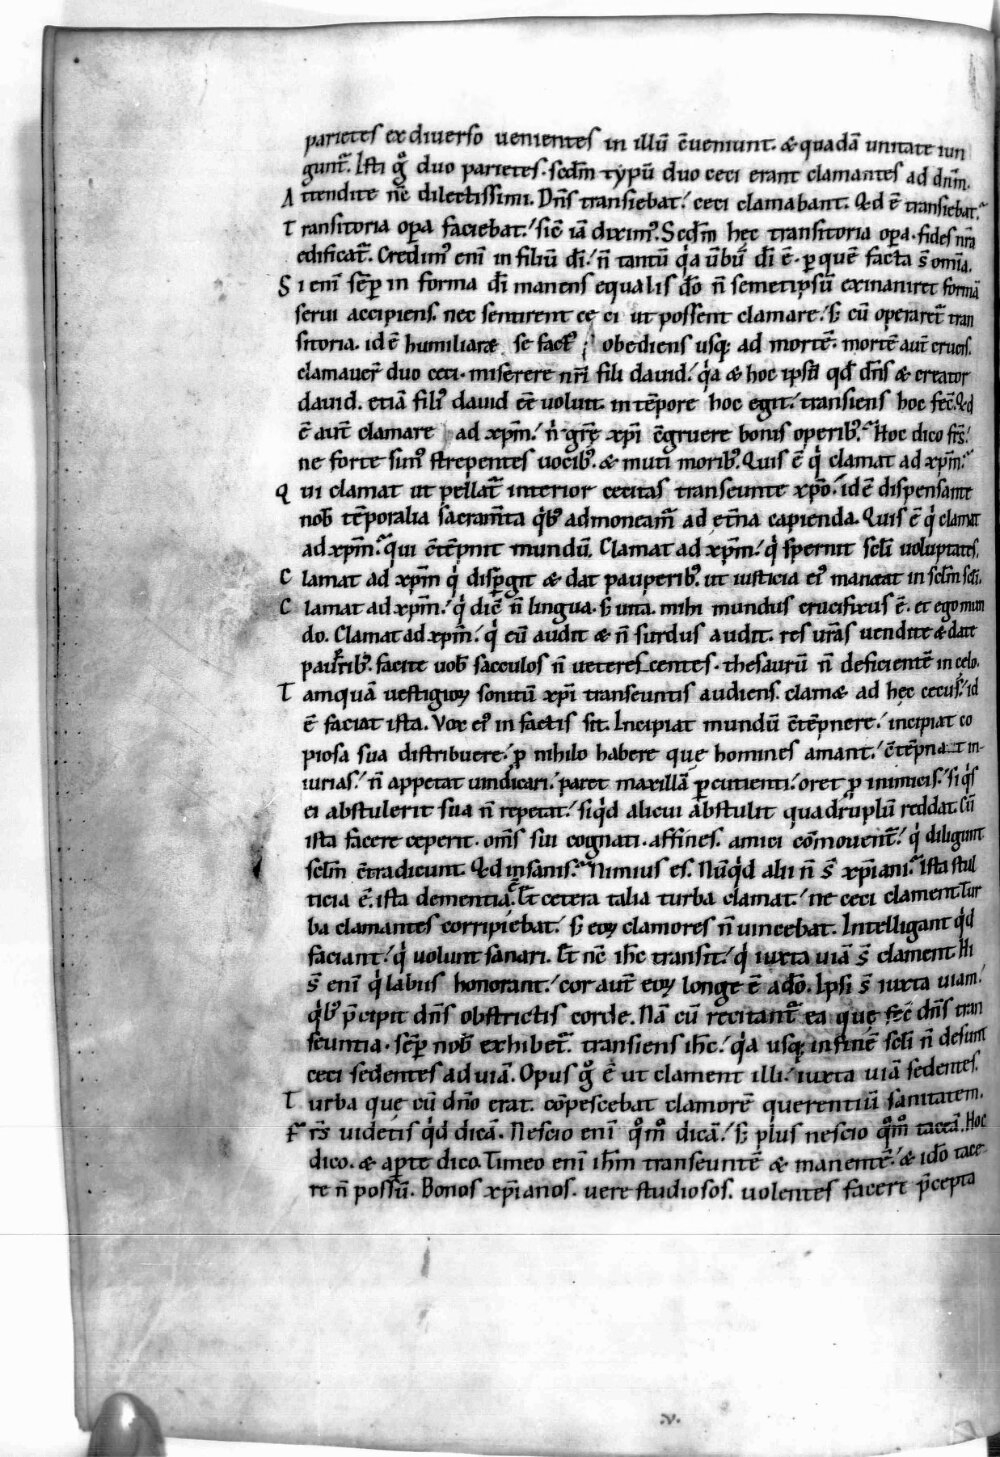 parietes ex diuerso uenientes in illū c̄ueniunt. & quadā unitate iun
gunt᷑. Isti g̊ duo parietes. scd̄m typū duo ceci erant clamantes ad dn̄m.
Attendite nc̄ dilectissimi. Dn̄s transiebat. ceci clamabant. Qd ē transiebat?
Transitoria oꝑa faciebat. sic̄ iā diximꝰ. Scd̄m hęc transitoria oꝑa. fides nr̄a
edificat᷑. Credimꝰ eni in filiū dī. n̄ tantū qͥa ūbū dī ē. ꝑ quē facta s̄ omīa.
Si eni sēꝑ in forma dī manens equalis dō n̄ semetipsū exinaniret formā
serui accipiens. nec sentirent ce ci ut possent clamare. s̄ cū operaret᷑ tran
sitoria. id ē humiliaræ se factꝰ obediens usq; ad mortē. mortē aut̄ crucis.
clamauer̄ duo ceci. miserere nr̄i fili dauid. qͥa & hoc ipsū qd̄ dn̄s & creator
dauid. etiā filiꝰ dauid eē uoluit. in tēpore hoc egit. transiens hoc fec̄. Qd
ē aut̄ clamare ad xp̄m. n̄ grę xp̄i c̄gruere bonis operibꝰ? Hoc dico fr̄s.
ne forte simꝰ strepentes uocibꝰ. & muti moribꝰ. Quis ē qͥ clamat ad xp̄m?
Qui clamat ut pellat᷑ interior cecitas transeunte xp̄o. id ē dispensante
nob̄ tēporalia sacram̄ta qͥbꝰ admoneam᷑ ad et̄na capienda. Quis ē qͥ clamat
ad xp̄m? qui c̄tēpnit mundū. Clamat ad xp̄m. qͥ spernit scl̄i uoluptates.
Clamat ad xp̄m qͥ disꝑgit & dat pauperibꝰ. ut iusticia eiꝰ maneat in scl̄m scl̄i.
Clamat ad xp̄m. qͥ dic̄ n̄ lingua. s̄ uita. mihi mundus crucifixus ē. et ego mun
do. Clamat ad xp̄m. qͥ eū audit & n̄ surdus audit. res ur̄as uendite & date
paup̄ribꝰ. facite uob̄ sacculos n̄ ueterescentes. thesaurū n̄ deficientē in celo.
Tamquā uestigioꝝ sonitū xp̄i transeuntis audiens. clamæ ad hęc cecus. id
ē faciat ista. Vox eiꝰ in factis sit. Incipiat mundū c̄tēpnere. incipiat co
piosa sua distribuere. ꝓ nihilo habere quę homines amant. c̄tēpnat in
iurias. n̄ appetat uindicari. paret maxillā ꝑcutienti. oret ꝓ inimicis. siqͥs
ei abstulerit sua n̄ repetat. siqͥd alicui abstulit quadruplū reddat. Cū
ista facere ceperit. om̄s sui cognati. affines. amici cōmouent᷑. qͥ diligunt
scl̄m c̄tradicunt. Qd insanis? Nimius es. Nūqͥd alii n̄ s̄ xp̄iani? Ista stul
ticia ē. ista dementia ē. Et cetera talia turba clamat. ne ceci clament. Tur
ba clamantes corripiebat. s̄ eoꝝ clamores n̄ uincebat. Intelligant qͥd
faciant. qͥ uolunt sanari. Et nc̄ ih̄c transit. qͥ iuxta uiā s̄ clament. Hi
s̄ eni qͥ labiis honorant. cor aut̄ eoꝝ longe ē a dō. Ipsi s̄ iuxta uiam.
qͥbꝰ p̄cipit dn̄s obstrictis corde. Nā cū recitant᷑ ea quę fec̄ dn̄s tran
seuntia. sēꝑ nob̄ exhibet᷑. transiens ih̄c. qͥa usq; in finē scl̄i n̄ desunt
ceci sedentes ad uiā. Opus g̊ ē ut clament illi. iuxta uiā sedentes.
Turba quę cū dn̄o erat. cōpescebat clamorē querentiū sanitatem.
Fr̄s uidetis qͥd dicā. Nescio eni qͦmͦ dicā. s̄ plus nescio qͦmͦ taceā. Hoc
dico. & aꝑte dico. Timeo eni ih̄m transeuntē & manentē. & idō tace
re n̄ possū. Bonos xp̄ianos. uere studiosos. uolentes facere p̄cepta
.v.